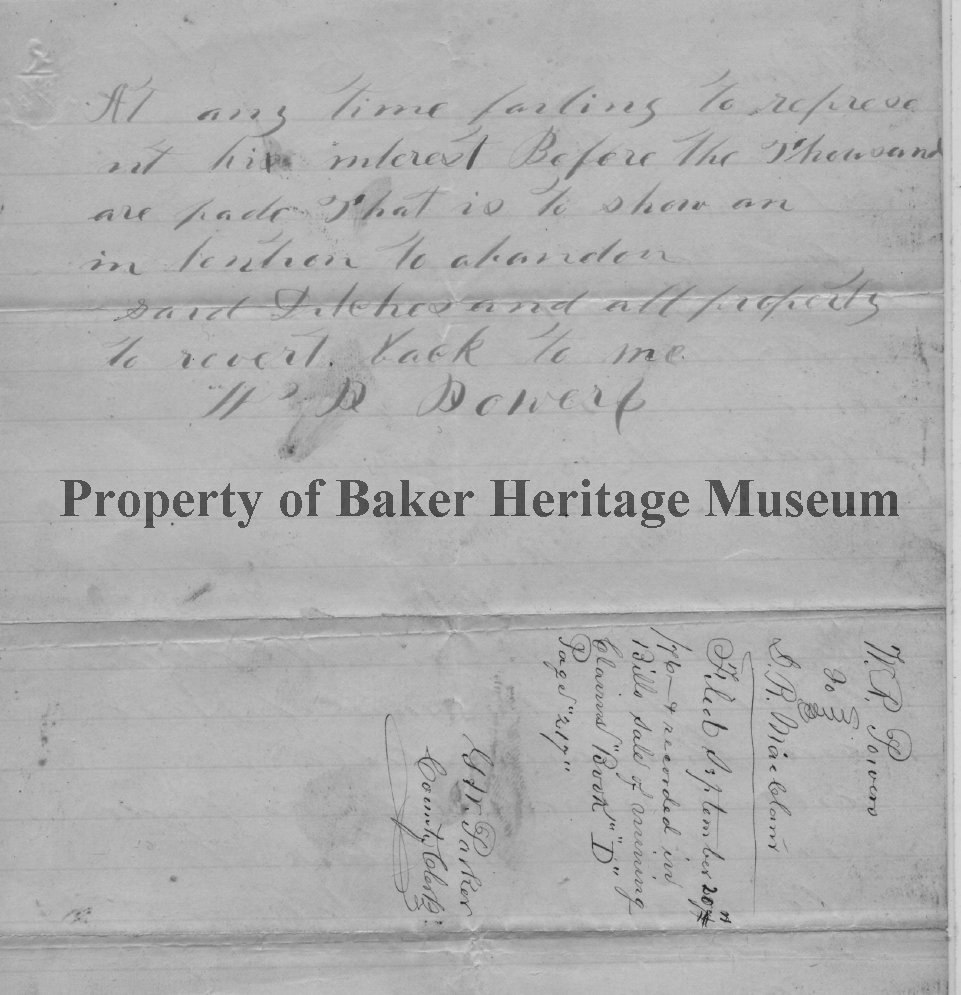 At any time farling to represe
nt his interest Before the Thousand
are pade That is to show an
in tention to abandon
said Ditches and all property
to revert back to me
W R Bowers
Property of Baker Heritage Museum
W. R. Powers
To
D. R.
Filed September 20th
/76 & recorded in
Bills Sale of mining
Claims "Book" "D"
Page "217"
Parker
County Clerk